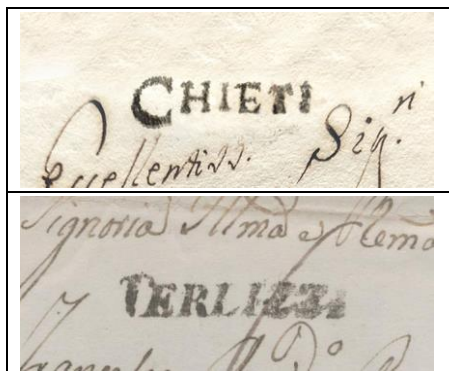 CHIETI
Eccellentiss. Sig.ri
Signoria Illma e Rema
TERLIZZI